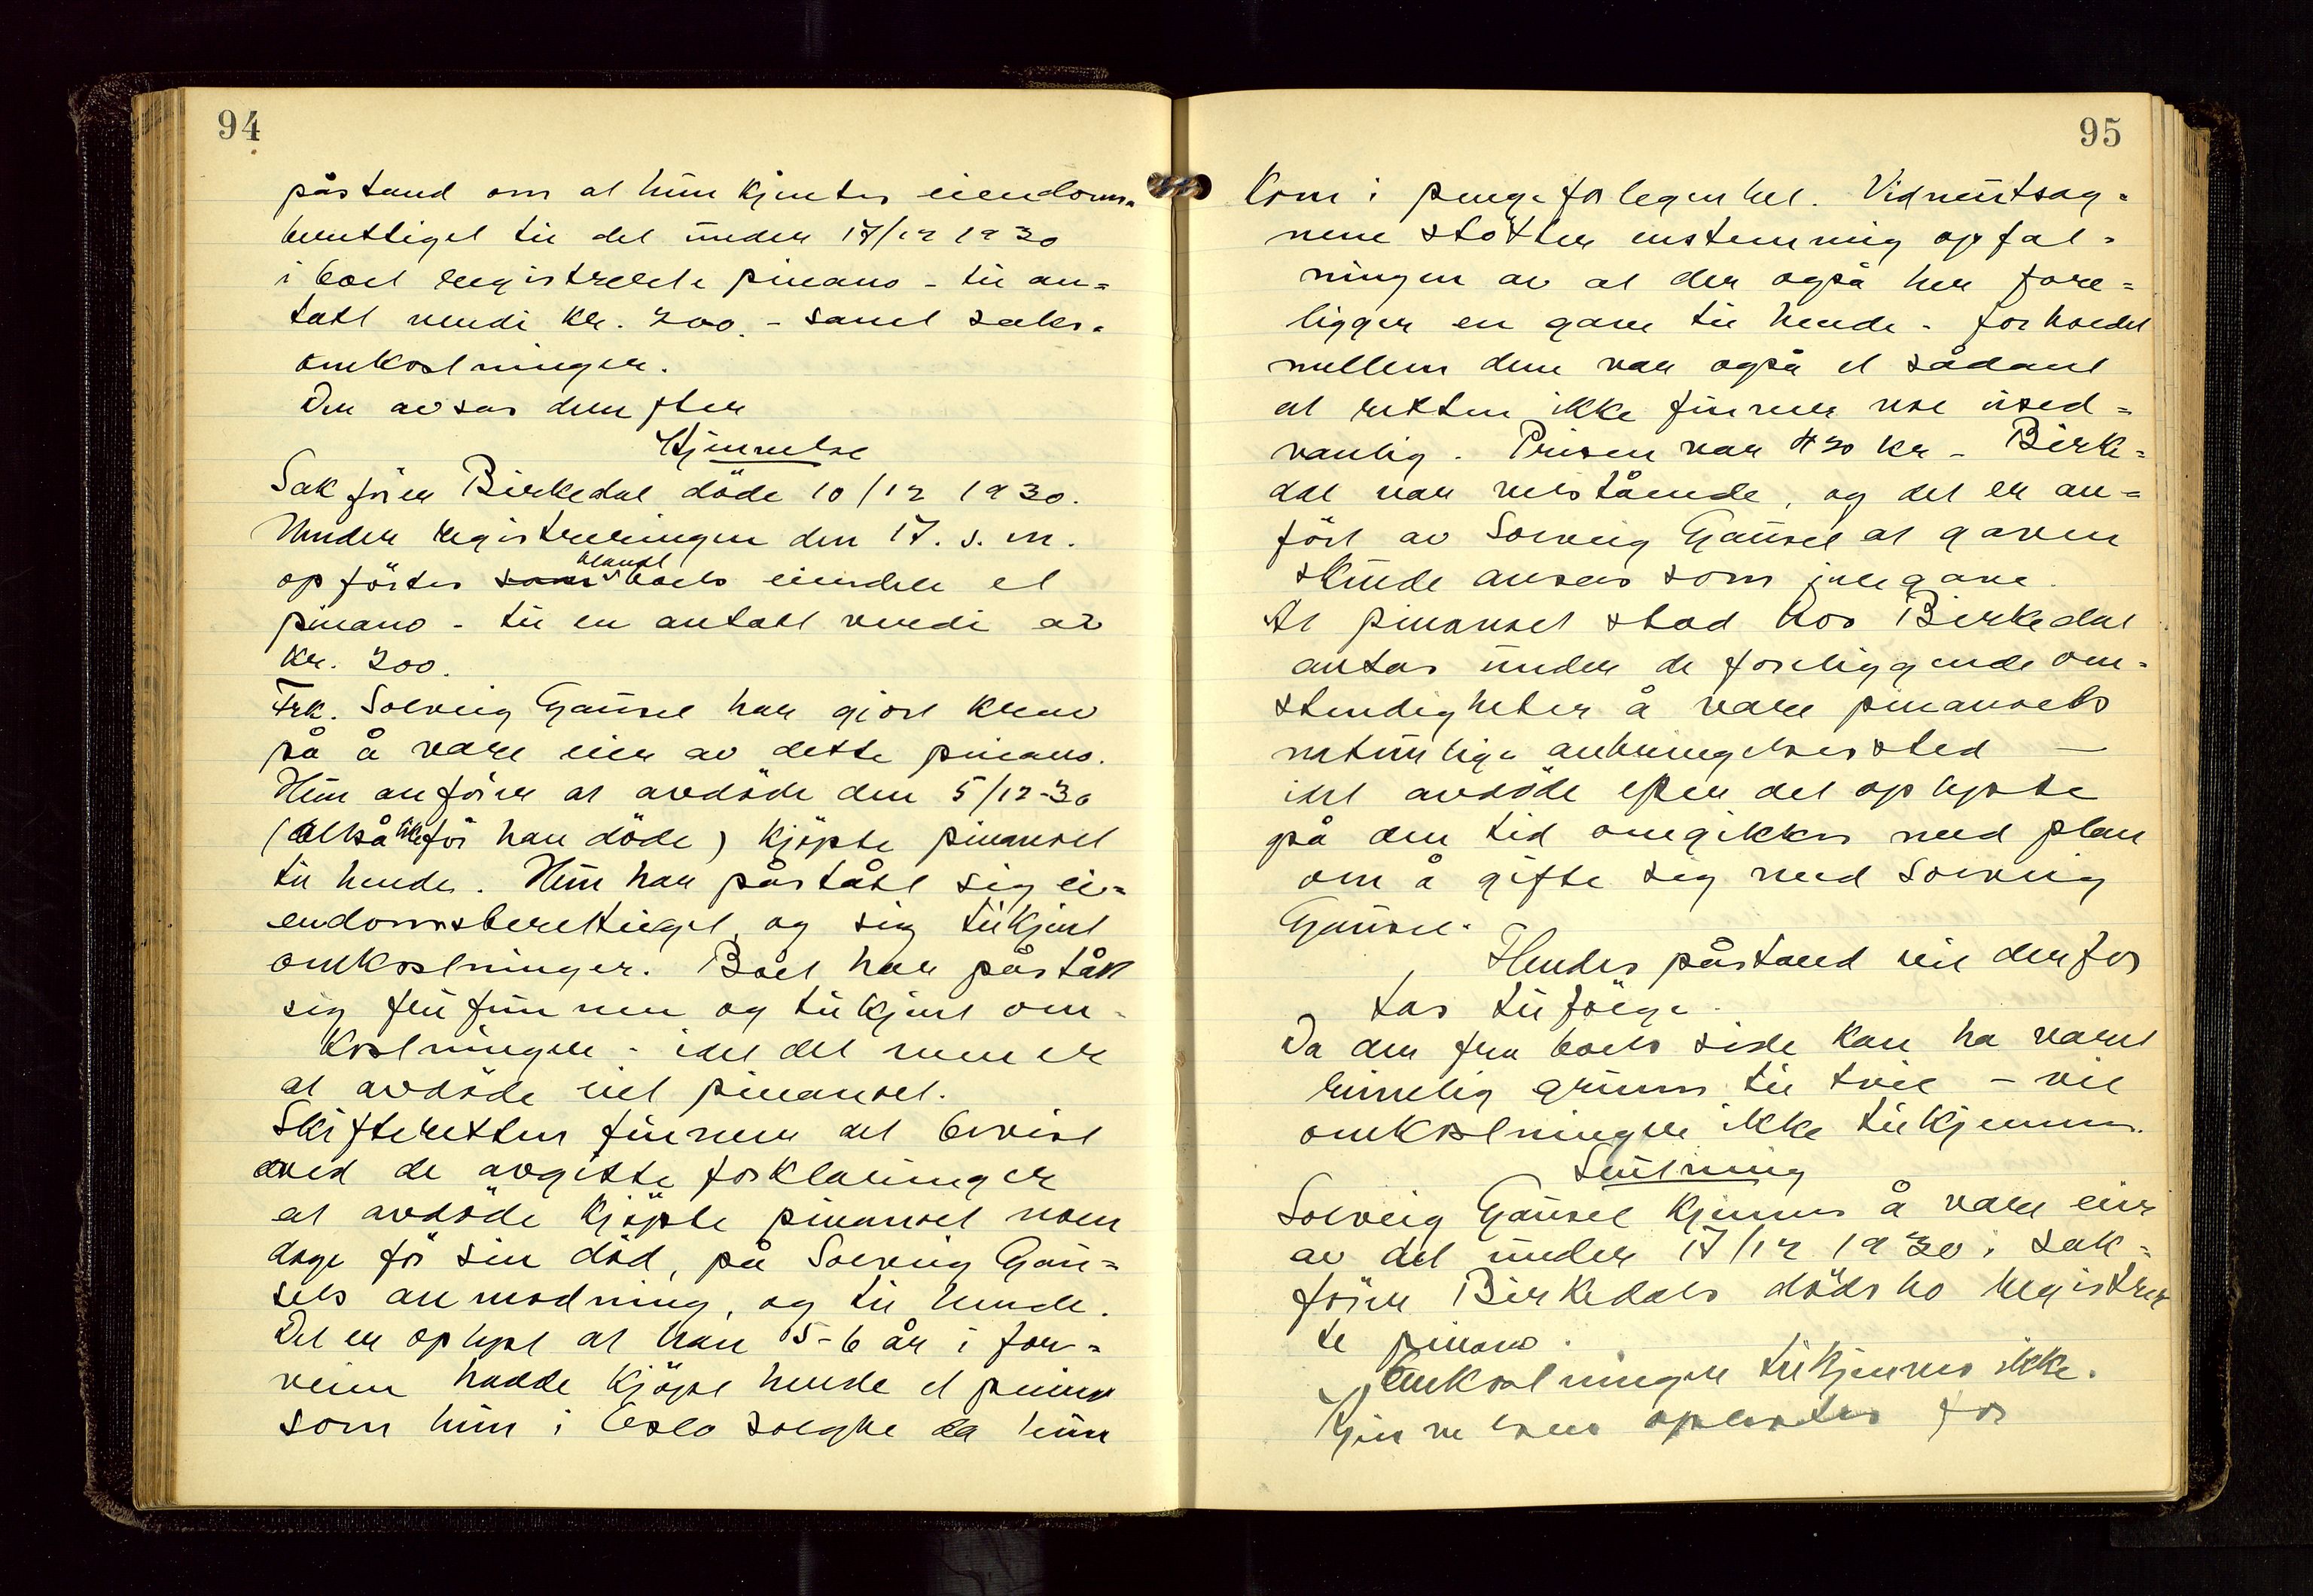 94
påstand om at hun kjentes eiendoms-
berettiget til det under 17/12 1930
i boet registrerte pineano - til an=
tatt verdi kr. 300. - samt saks-
omkostninger.
Der avsas derefter
Kjennelse
Sakfører Birkedal döde 10/12 1930.
Under registreringen den 17. s. m.
opførtes blandt boets eiendele et
pineano - til en antatt verdi av
kr. 300.
Frk. Solveig Gausel har gjort krav
på å være eier av dette pineano.
Hun anfører at avdöde den 5/12-30
(altså like før han döde) kjöpte pineanoet
til hende. Hun har påstått sig ei=
endomsberettiget, og sig tilkjent
omkostninger. Boet har påstått
sig frifunnen og tilkjent om-
kostninger - idet det mener
at avdöde eiet pineanoet.
Skifteretten finner det bevist
ved de avgitte forklaringer
at avdöde kjöpte pineanoet noen
dage før sin död, på Solveig Gau=
sels anmodning, og til hende.
Det er oplyst at han 5-6 år i for=
veien hadde kjöpt hende et pineano
som hun i Oslo solgte da hun
95
kom i pengeforlegenhet. Vidneutsag-
nene stötter enstemmig opfat-
ningen av at der også her fore=
ligger en gave til hende. Forholdet
mellem dem var også et sådant
at retten ikke finner noe used=
vanlig. Prisen var 430 kr - Birke-
dal var velstående, og det er an=
fört av Solveig Gausel at gaven
skulde ansees som julegave.
At pineanoet stod hos Birkedal
antas under de foreliggende om-
stendigheter å være pineanoets
naturlige anbringelsessted —
idet avdöde efter det oplyste
på den tid omgikkes med plan
om å gifte sig med Solveig
Gausel.
Hendes påstand vil derfor
tas tilfølge.
Da der fra boets side kan ha været
rimelig grunn til tvil - vil
omkostninger ikke tilkjennes.
Slutning
Solveig Gausel kjennes å være eier
av det under 17/12 1930 i sak=
fører Birkedals dödsbo registrer
te pineano.
Omkostninger tilkjennes ikke.
Kjennelsen oplestes for